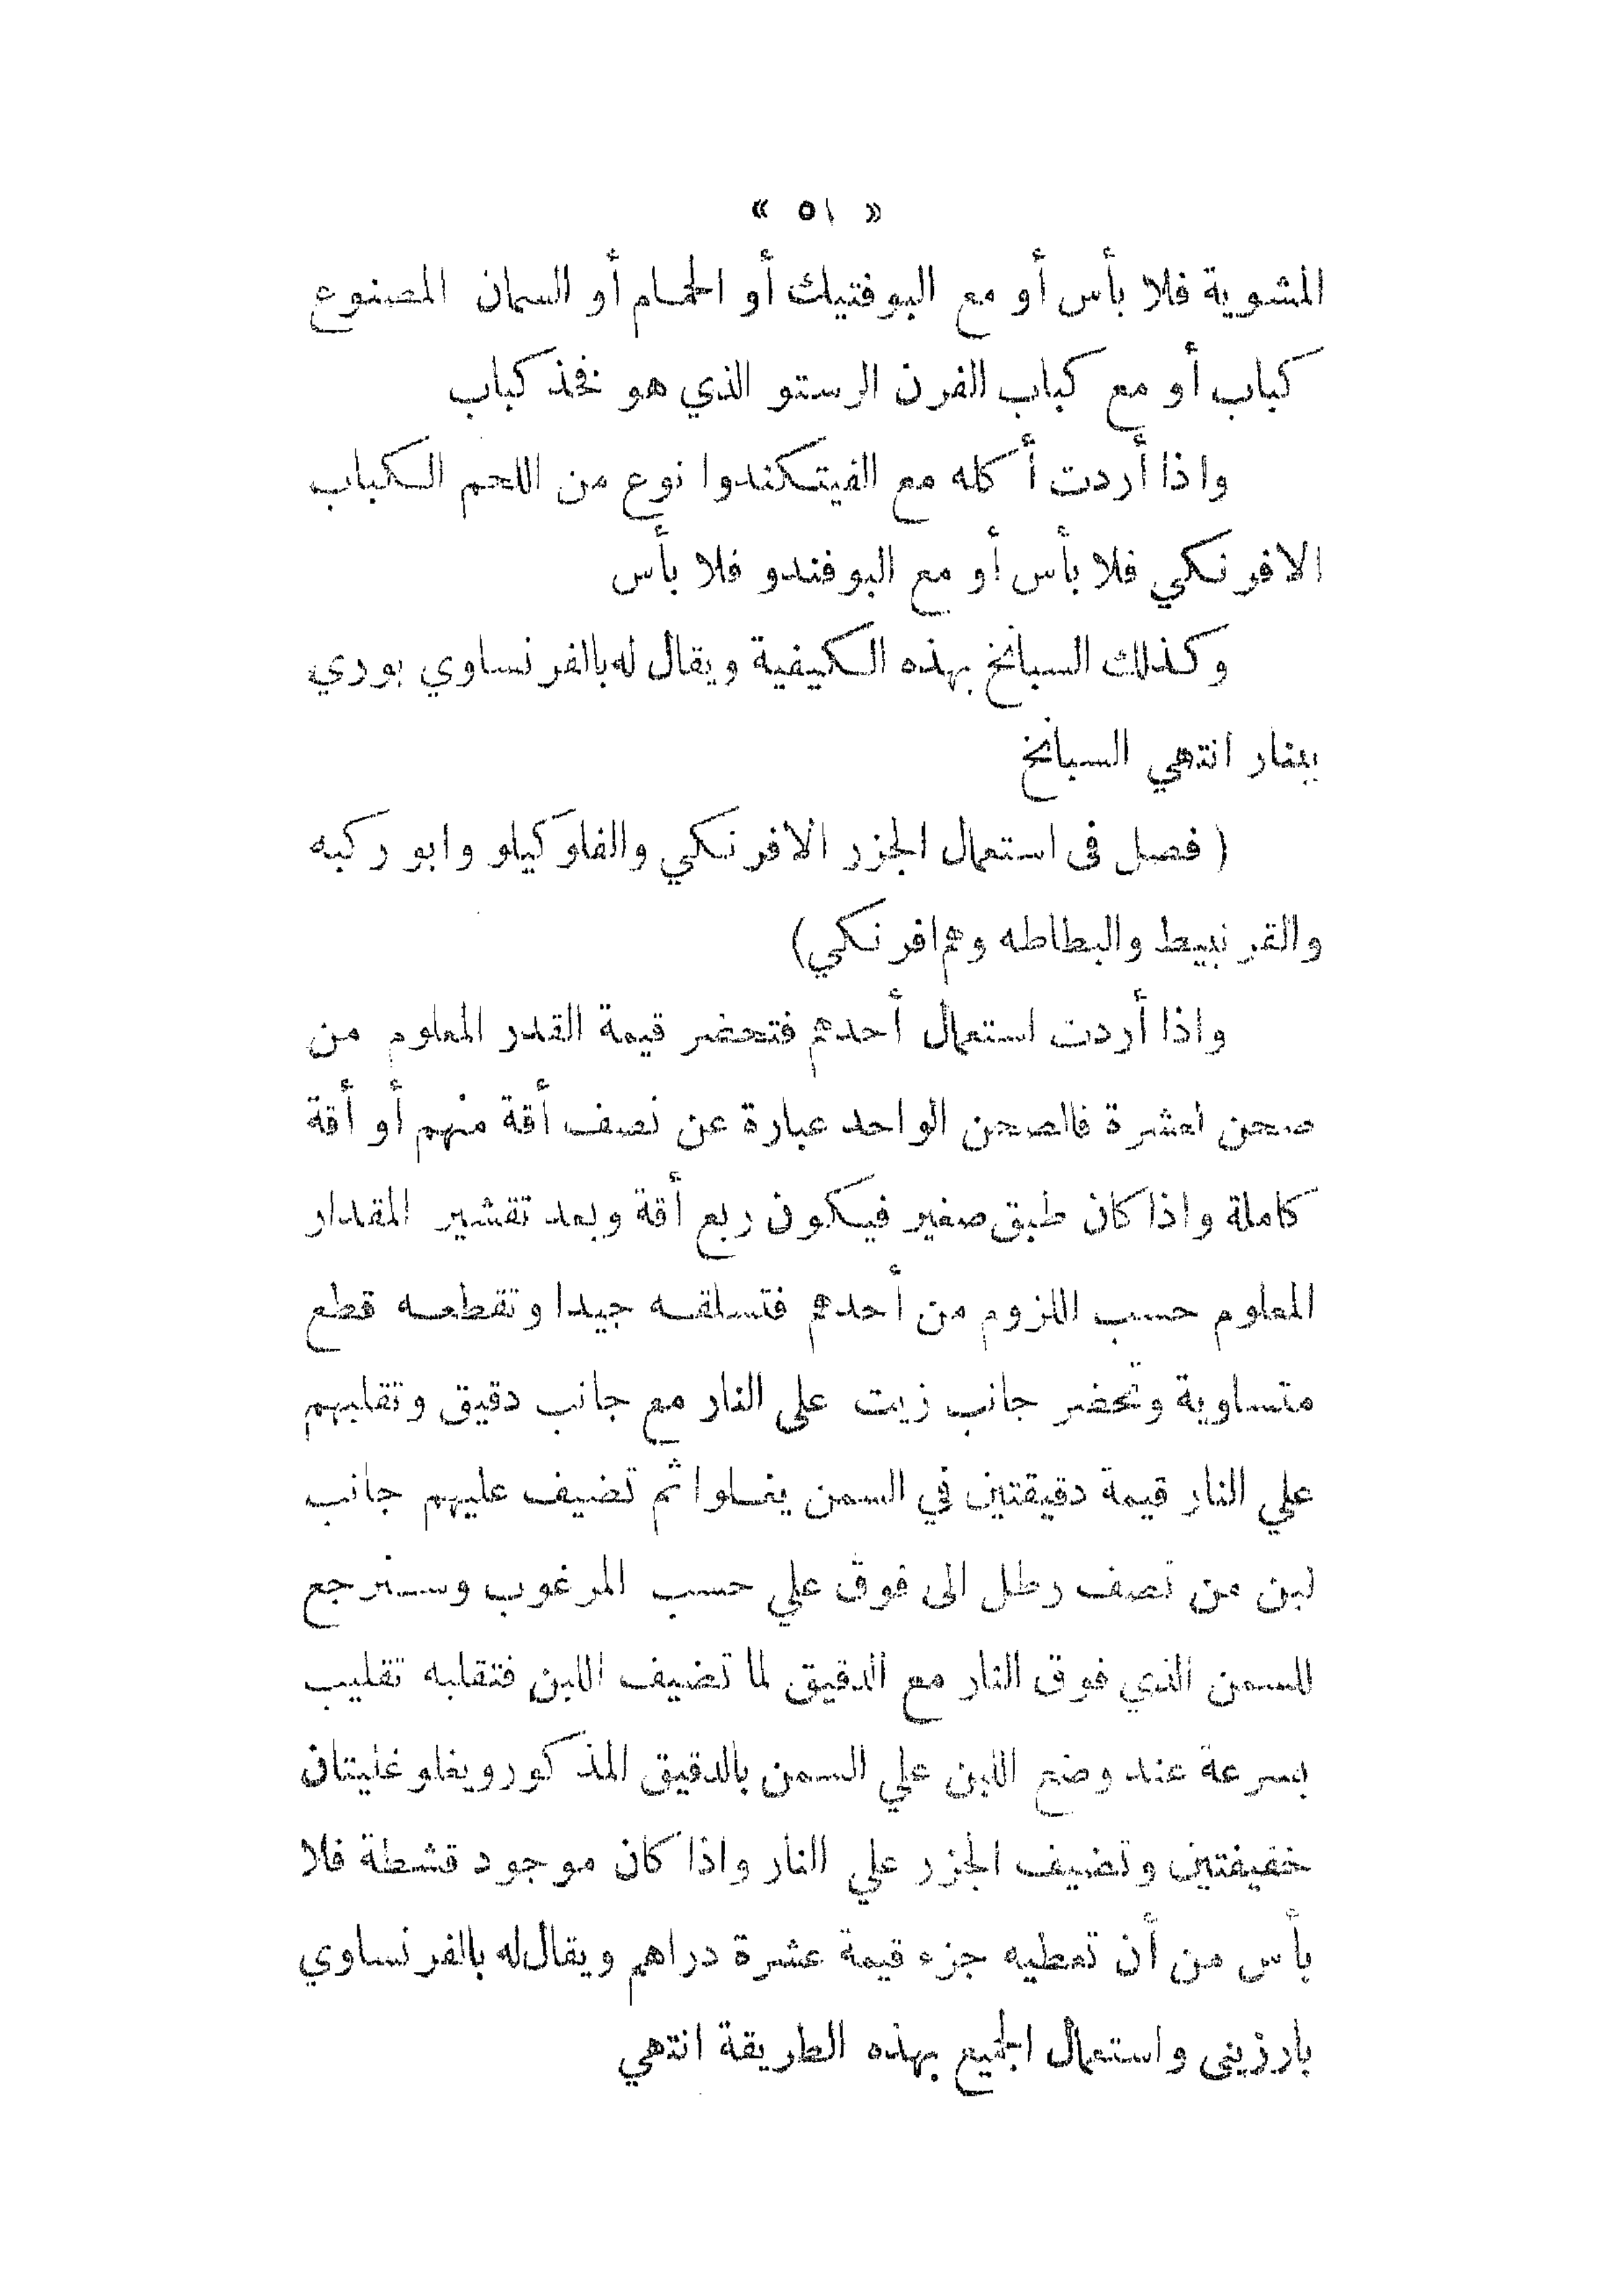 « ٥١ »
المشوية فلا بأس أو مع البوفتيك أو الحمام أو السمان المصنوع
كباب أو مع كباب الفرن الرستو الذي هو فخذ كباب
واذا أردت أكله مع الفيتكندوا نوع من اللحم الكباب
الافرنكي فلا بأس أو مع البوفندو فلا بأس
وكذلك السبانخ بهذه الكيفية ويقال له بالفرنساوي بوري
بينار انتهي السبانخ
( فصل فى استعمال الجزر الافرنكي والفلوكيلو وابو ركبه
والقرنبيط والبطاطه وهم افرنكي)
واذا أردت استعمال أحدهم فتحضر قيمة القدر المعلوم من
صحن لعشرة فالصحن الواحد عبارة عن نصف أقة منهم أو أقة
كاملة واذا كان طبق صغير فيكون ربع أقة وبعد تقشير المقدار
المعلوم حسب اللزوم من أحدهم فتسلقه جيدا وتقطعه قطع
متساوية وتحضر جانب زيت على النار مع جانب دقيق وتقلبهم
علي النار قيمة دقيقتين في السمن يغلوا ثم تضيف عليهم جانب
لبن من نصف رطل الى فوق علي حسب المرغوب وسنرجع
للسمن الذي فوق النار مع الدقيق لما تضيف اللبن فتقلبه تقليب
بسرعة عند وضع اللبن علي السمن بالدقيق المذكور ويغلو غليتان
خفيفتين وتضيف الجزر علي النار واذا كان موجود قشطة فلا
بأس من أن تعطيه جزء قيمة عشرة دراهم ويقال له بالفرنساوي
بارزينى واستعمال الجميع بهذه الطريقة انتهي